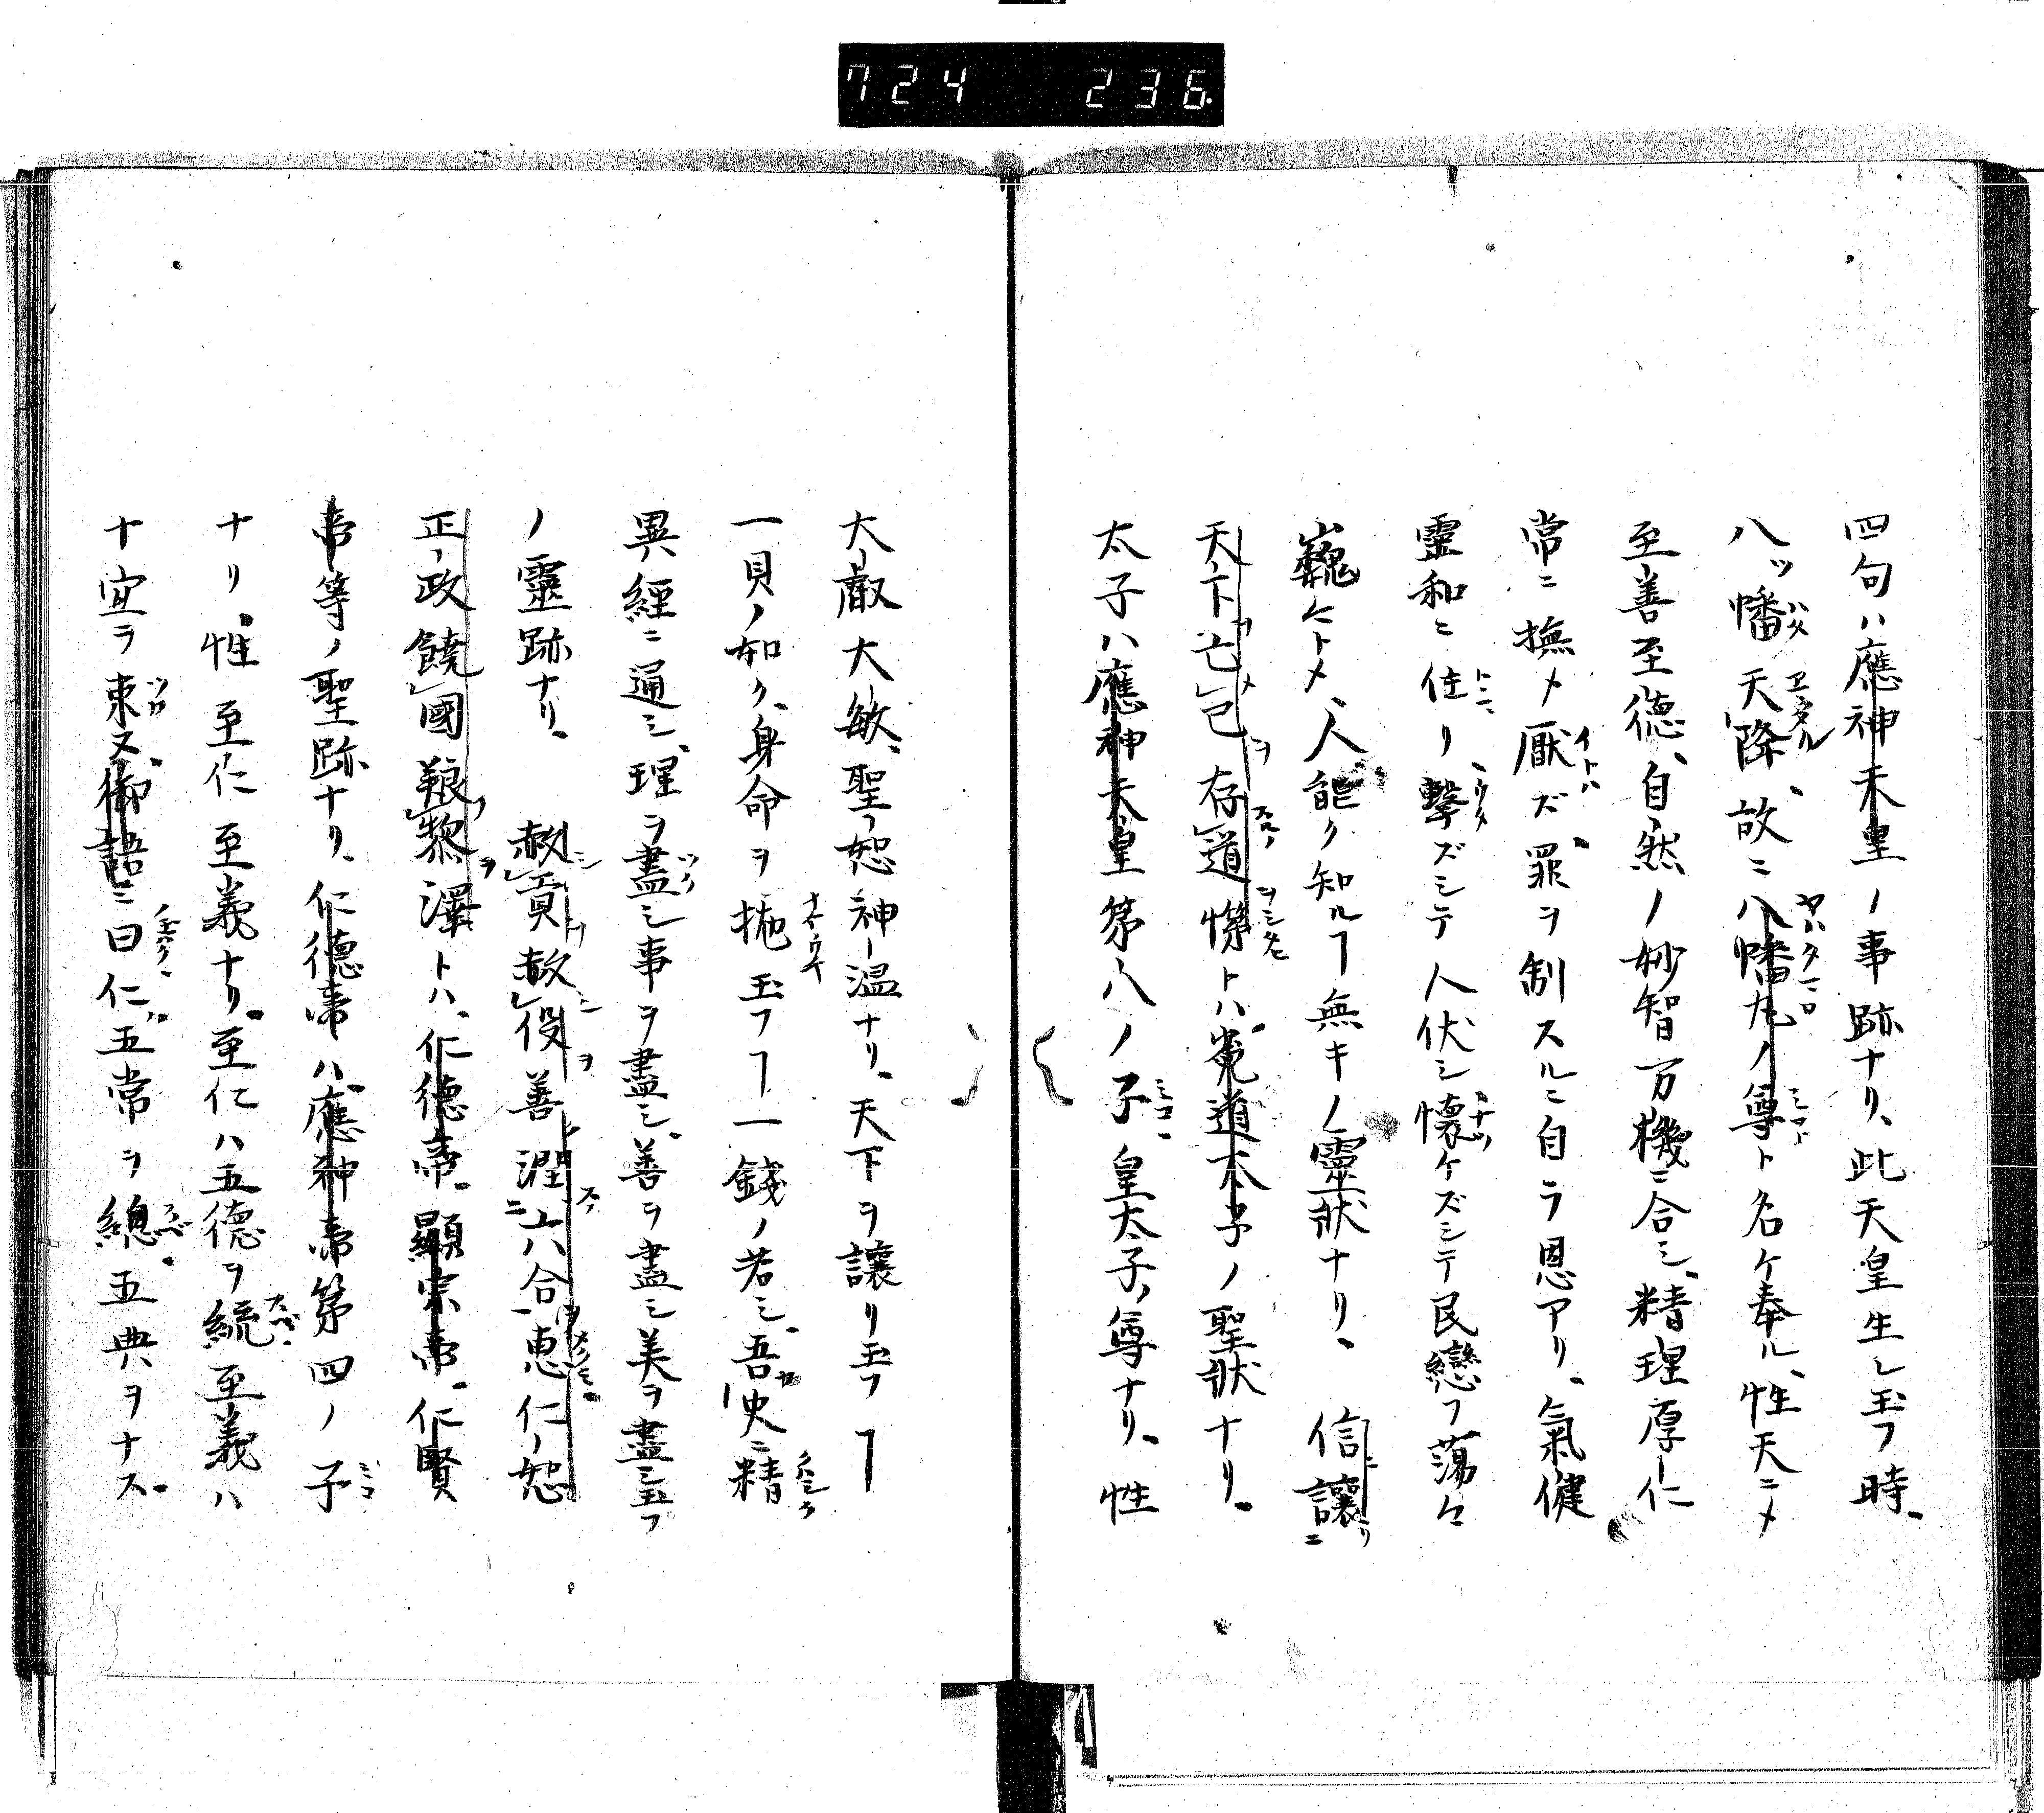 724 236
四句ハ應神天皇ノ事跡ナリ、此天皇生レ玉フ時、
八ッ幡天降、故ニ八幡丸ノ尊ト名ケ奉ル、性天ニメ
至善至德、自然ノ妙智万機ニ合シ、精理厚仁
常ニ撫メ厭ズ、罪ヲ制スルニ自ラ恩アリ、氣健
靈和ニ住リ、擊ズシテ人伏シ懷ケズシテ民戀フ蕩々
巍々トメ、人能ク知ルヿ無キノ靈狀ナリ、信讓ニ
天下亡己存道懌トハ、菟道太子ノ聖狀ナリ、
太子ハ應神天皇第八ノ子、皇太子ノ尊ナリ、性
大叡大敏、聖恕神温ナリ、天下ヲ讓リ玉フヿ
一貝ノ如ク、身命ヲ拖玉フヿ一錢ノ若シ、吾史ニ精
異經ニ通シ、理ヲ盡シ事ヲ盡シ、善ヲ盡シ美ヲ盡シ玉フ
ノ靈跡ナリ、赦貢赦役善潤六合惠仁恕
正政饒國粮黎澤トハ、仁德帝、顯宗帝、仁賢
帝等ノ聖跡ナリ、仁德帝ハ應神帝第四ノ子
ナリ、性至仁至義ナリ、至仁ハ五德ヲ統、至義ハ
十宜ヲ束、又御語ニ曰、仁五常ヲ總、五典ヲナス、